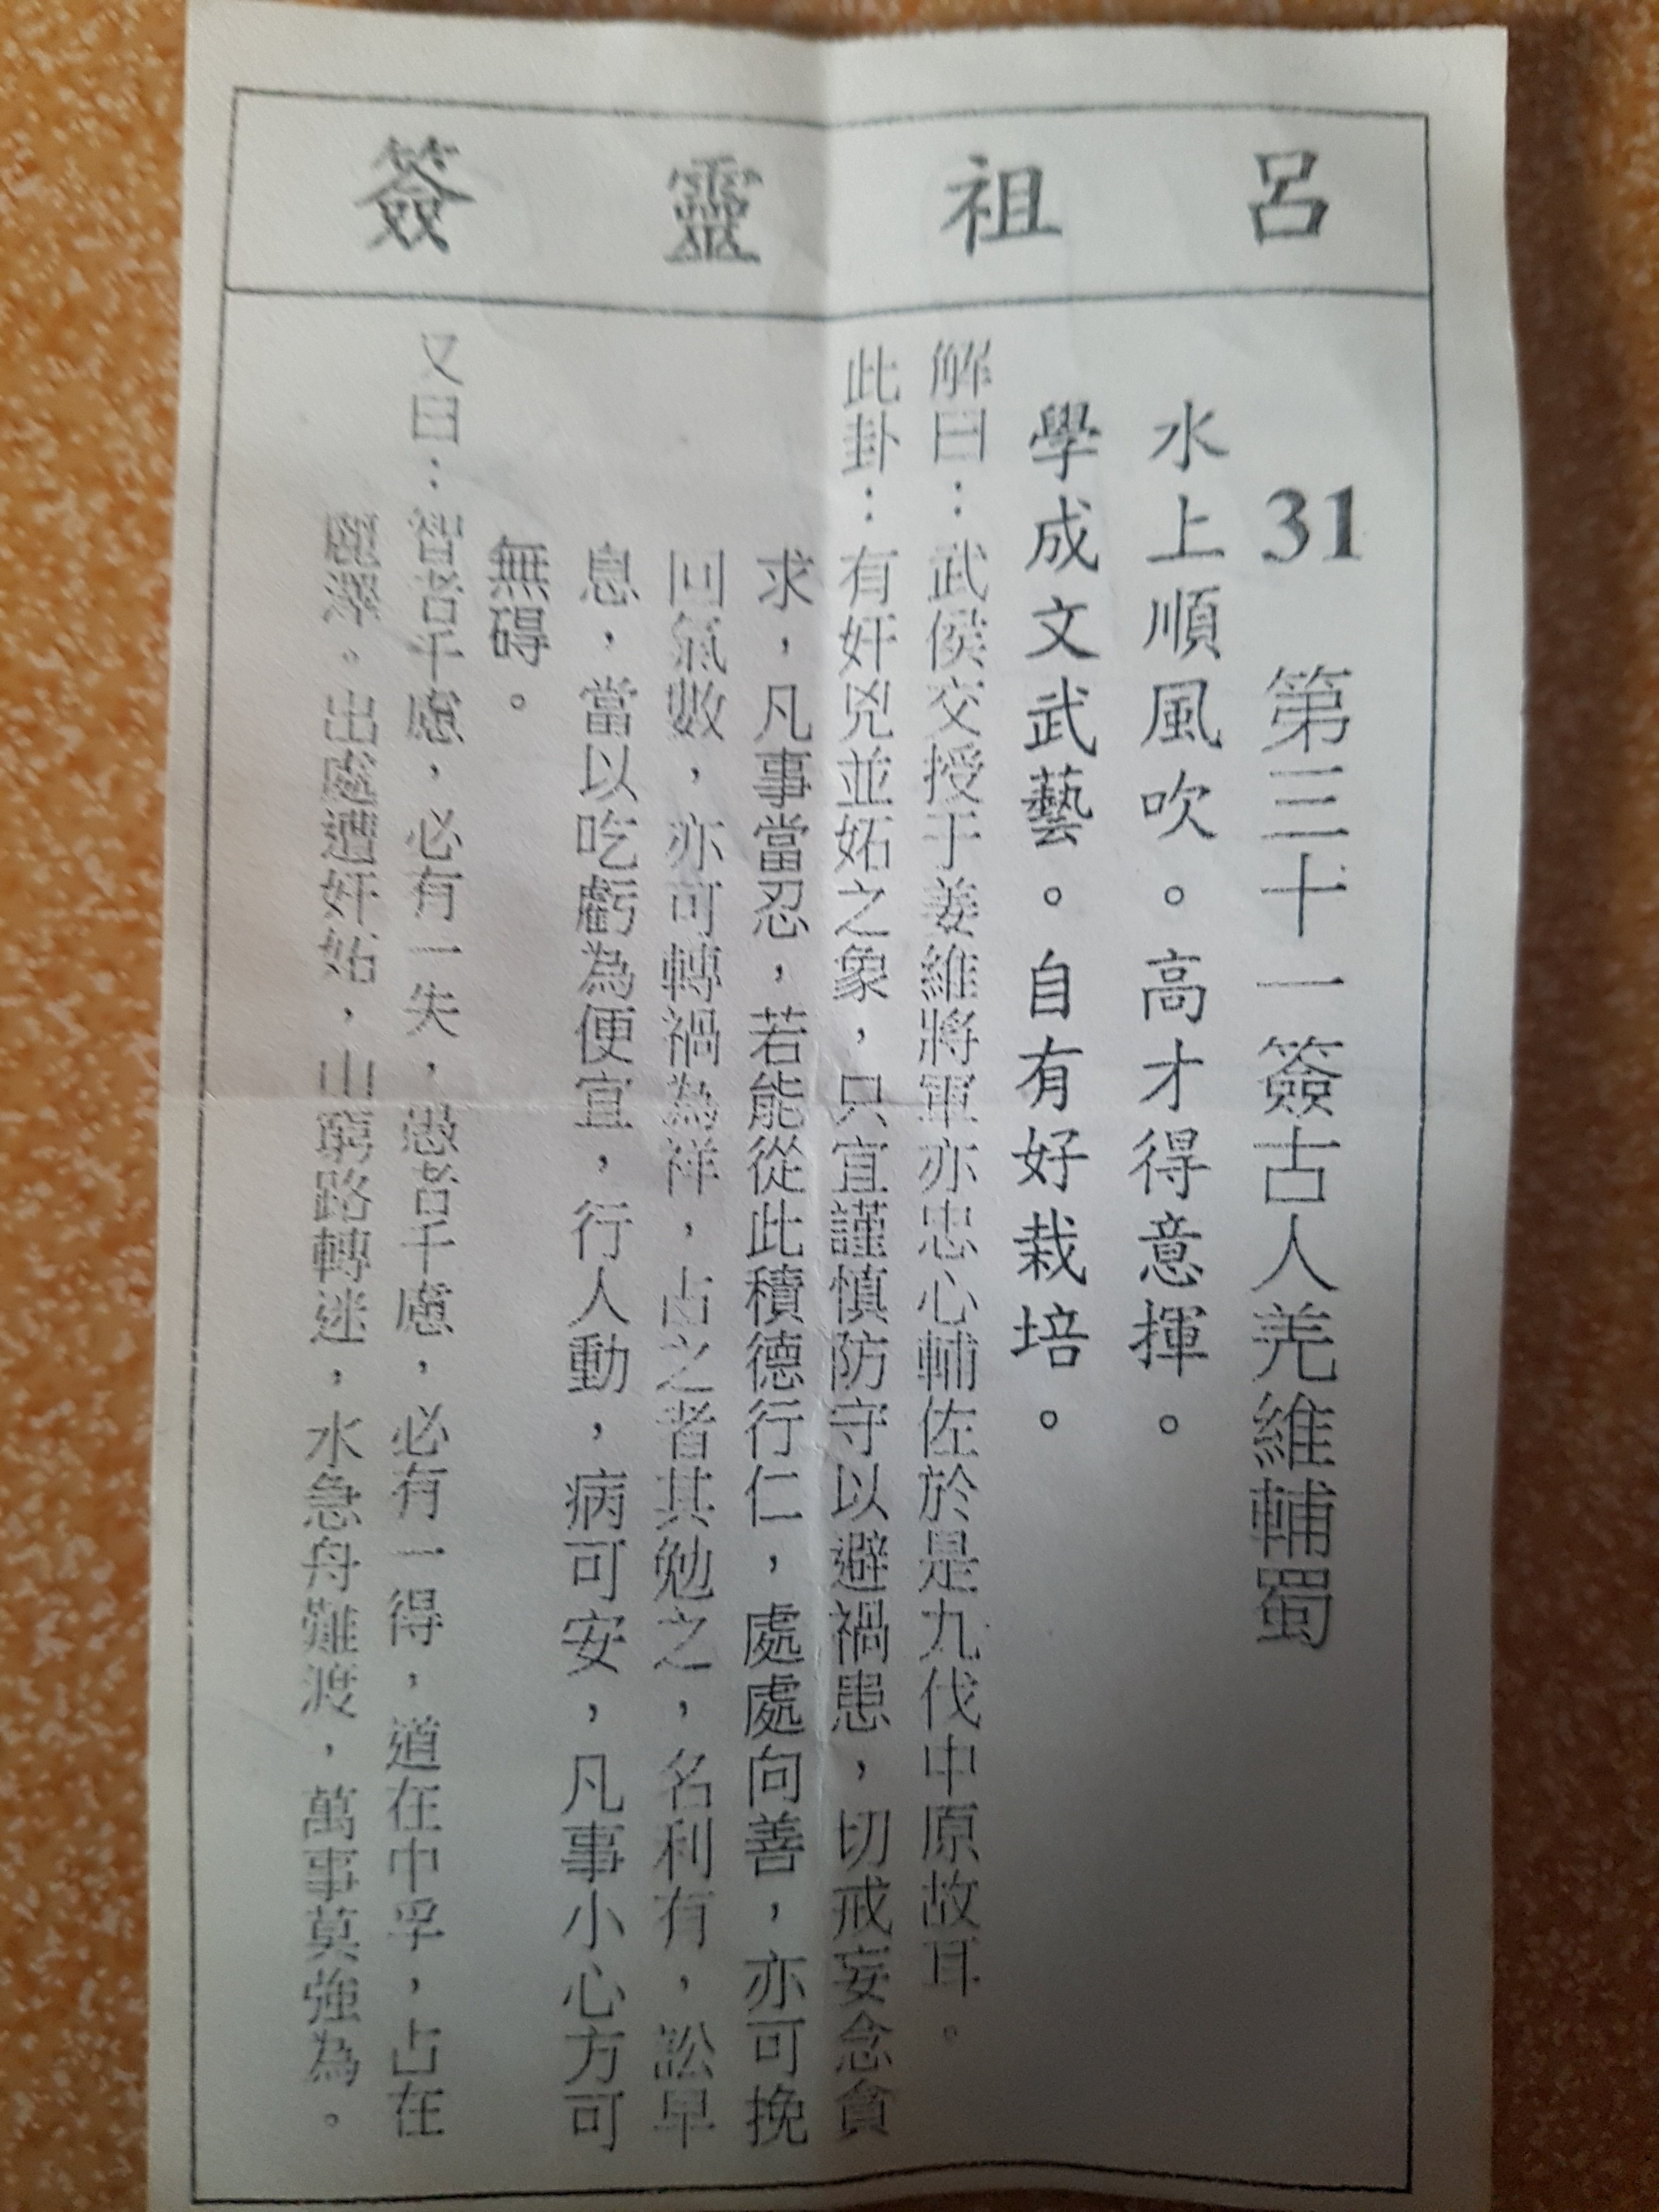 呂祖靈簽
31 第三十一簽古人羌維輔蜀
水上順風吹。高才得意揮。
學成文武藝。自有好栽培。
解曰：武侯交授于姜維將軍亦忠心輔佐於是九伐中原故耳。
此卦：有奸兇並妬之象，只宜謹慎防守以避禍患，切戒妄念貪
求，凡事當忍，若能從此積德行仁，處處向善，亦可挽
回氣數，亦可轉禍為祥，占之者其勉之，名利有，訟早
息，當以吃虧為便宜，行人動，病可安，凡事小心方可
無碍。
又曰：智者千慮，必有一失，愚者千慮，必有一得，道在中孚，占在
麗澤。出處遭奸妬，山窮路轉迷，水急舟難渡，萬事莫強為。